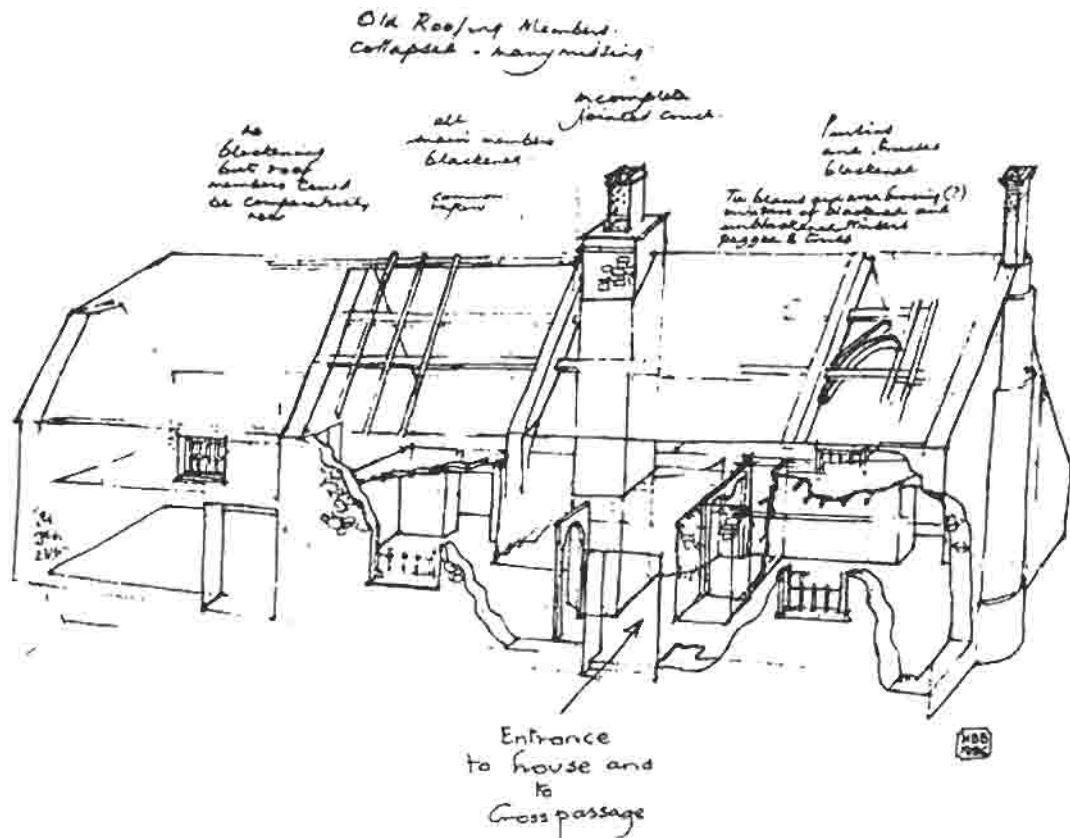 Old Roofing Members.
Collapsed - many missing
no
blackening
but roof
members
be comparatively
new
all
main members
blackened
common
incomplete
jointed cruck.
Purlins
and trusses
blackened
Tie beams over (?)
mixture of blackened and
unblackened timbers
pegged
Entrance
to house and
to
Cross passage
HBB